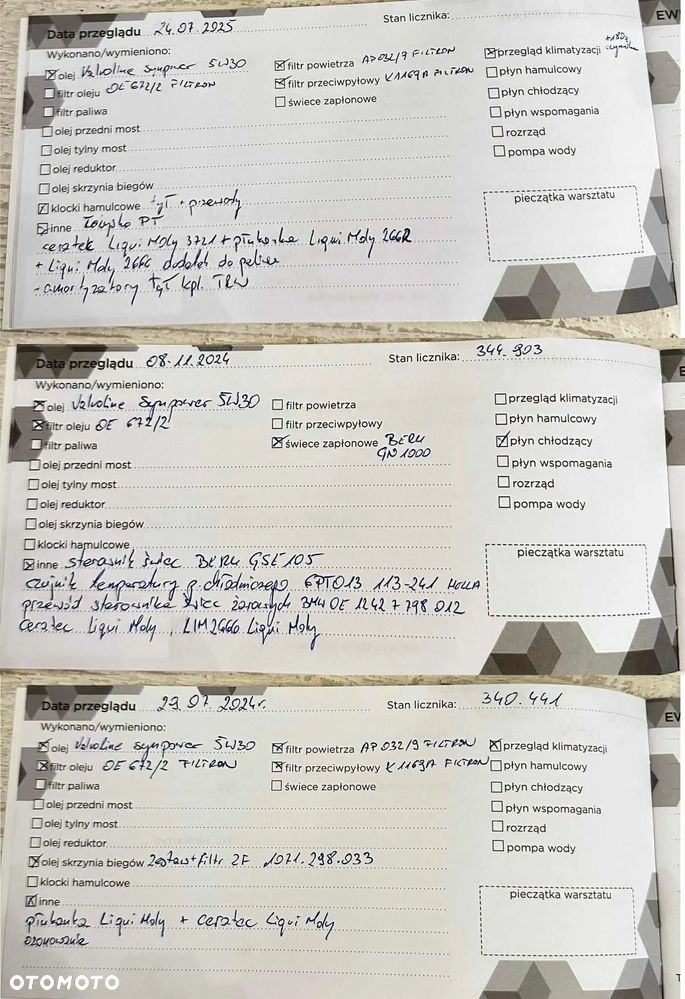 Data przeglądu 24.07.2025 Stan licznika:
EW
Wykonano/wymieniono:
olej Valvoline Synpower 5W30
filtr oleju OE 672/2 FILTRON
filtr paliwa
olej przedni most
olej tylny most
olej reduktor
olej skrzynia biegów
klocki hamulcowe tył + przewody
inne Łożysko PT
ceratek Liqui Moly 3721 + płukanka Liqui Moly 2662
+ Liqui Moly 2666 dodatek do paliwa
- amortyzatory tył kpl. TRW
filtr powietrza AP032/9 FILTRON
filtr przeciwpyłowy K1169A FILTRON
świece zapłonowe
przegląd klimatyzacji +180g czynnika
płyn hamulcowy
płyn chłodzący
płyn wspomagania
rozrząd
pompa wody
pieczątka warsztatu
Data przeglądu 08.11.2024 Stan licznika: 344.903
E
Wykonano/wymieniono:
olej Valvoline Synpower 5W30
filtr oleju OE 672/2
filtr paliwa
olej przedni most
olej tylny most
olej reduktor
olej skrzynia biegów
klocki hamulcowe
inne sterownik świec BERU GSE105
czujnik temperatury p. chłodniczego 6PT013 113-241 HELLA
przewód sterownika świec żarowych BMW OE 1242 7 798 012
ceratec Liqui Moly, LIM2666 Liqui Moly
filtr powietrza
filtr przeciwpyłowy
świece zapłonowe BERU
GN1000
przegląd klimatyzacji
płyn hamulcowy
płyn chłodzący
płyn wspomagania
rozrząd
pompa wody
pieczątka warsztatu
Data przeglądu 29.07.2024r. Stan licznika: 340.441
EW
Wykonano/wymieniono:
olej Valvoline Synpower 5W30
filtr oleju OE 672/2 FILTRON
filtr paliwa
olej przedni most
olej tylny most
olej reduktor
olej skrzynia biegów Zestaw+filtr ZF 1071.298.033
klocki hamulcowe
inne
płukanka Liqui Moly + ceratec Liqui Moly
ozonowanie
filtr powietrza AP032/9 FILTRON
filtr przeciwpyłowy K1169A FILTRON
świece zapłonowe
przegląd klimatyzacji
płyn hamulcowy
płyn chłodzący
płyn wspomagania
rozrząd
pompa wody
pieczątka warsztatu
T
OTOMOTO